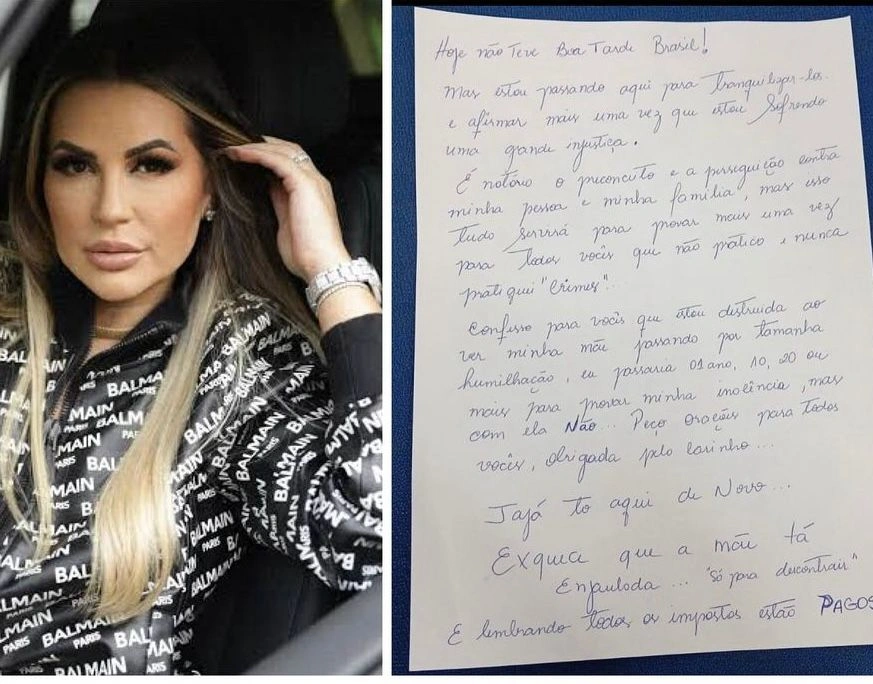 Hoje não Teve Boa Tarde Brasil!
Mas estou passando aqui para Tranquilizar-los
e afirmar mais uma vez que estou Sofrendo
uma grande injustiça.
É notório o preconceito e a perseguição contra
minha pessoa e minha família, mas isso
tudo Servirá para provar mais uma vez
para Todos vocês que não pratico e nunca
pratiquei "Crimes"...
Confesso para vocês que estou destruida ao
ver minha mãe passando por tamanha
humilhação, eu passaria 01 ano, 10, 20 ou
mais para provar minha inocência, mas
com ela Não... Peço orações para todos
vocês, obrigada pelo carinho...
Jajá to aqui de Novo...
Exquea que a mãe tá
Enjaulada... "só para descontrair"
E lembrando todos os impostos estão PAGOS
BALMAIN
PARIS
BALMAIN
PARIS
BALMAIN
PARIS
BALMAIN
PARIS